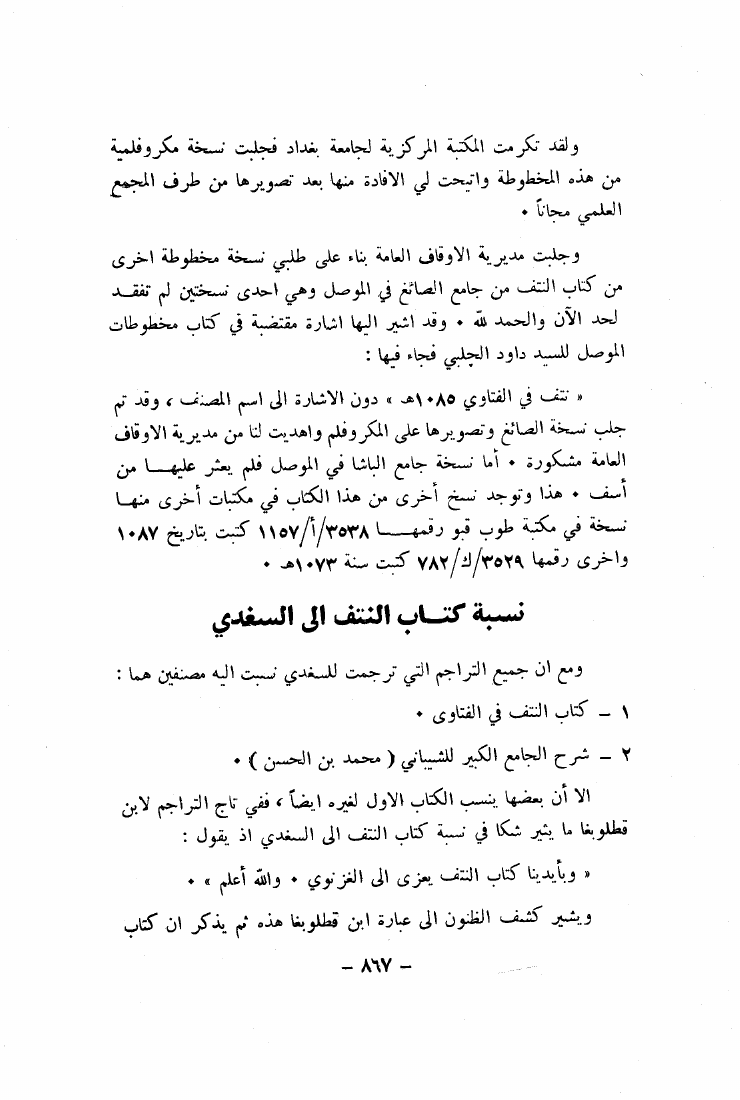 ولقد تكرمت المكتبة المركزية لجامعة بغداد فجلبت نسخة مكروفلمية
من هذه المخطوطة واتيحت لي الافادة منها بعد تصويرها من طرف المجمع
العلمي مجاناً ٠
وجلبت مديرية الاوقاف العامة بناء على طلبي نسخة مخطوطة اخرى
من كتاب النتف من جامع الصائغ في الموصل وهي احدى نسختين لم تفقد
لحد الآن والحمد لله ٠ وقد اشير اليها اشارة مقتضبة في كتاب مخطوطات
الموصل للسيد داود الچلبي فجاء فيها :
« نتف في الفتاوي ١٠٨٥هـ » دون الاشارة الى اسم المصنف ، وقد تم
جلب نسخة الصائغ وتصويرها على المكروفلم واهديت لنا من مديرية الاوقاف
العامة مشكورة ٠ أما نسخة جامع الباشا في الموصل فلم يعثر عليها من
أسف ٠ هذا وتوجد نسخ أخرى من هذا الكتاب في مكتبات أخرى منها
نسخة في مكتبة طوب قبو رقمها ٣٥٣٨/أ/١١٥٧ كتبت بتاريخ ١٠٨٧
واخرى رقمها ٣٥٢٩/ك/٧٨٢ كتبت سنة ١٠٧٣هـ ٠
نسبة كتاب النتف الى السغدي
ومع ان جميع التراجم التي ترجمت للسغدي نسبت اليه مصنفين هما :
١ – كتاب النتف في الفتاوى ٠
٢ – شرح الجامع الكبير للشيباني ( محمد بن الحسن ) ٠
الا أن بعضها ينسب الكتاب الاول لغيره ايضاً ، ففي تاج التراجم لابن
قطلوبغا ما يثير شكا في نسبة كتاب النتف الى السغدي اذ يقول :
« وبأيدينا كتاب النتف يعزى الى الغزنوي ٠ والله أعلم » ٠
ويشير كشف الظنون الى عبارة ابن قطلوبغا هذه ثم يذكر ان كتاب
– ٨٦٧ –